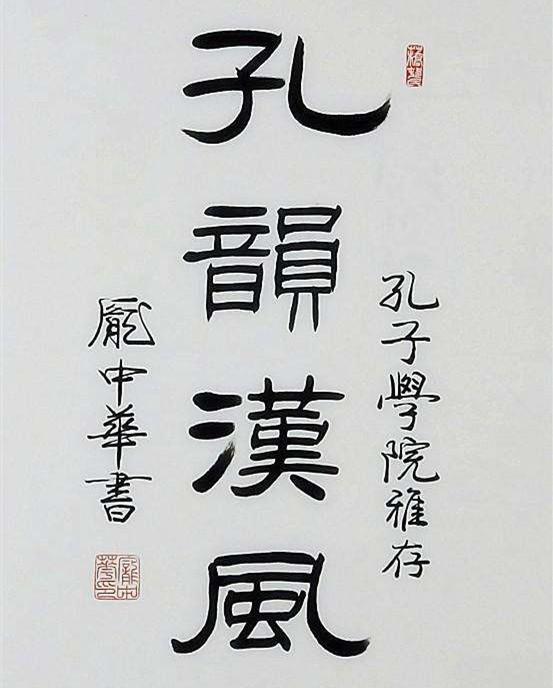 孔子學院雅存
孔韻漢風
龐中華書